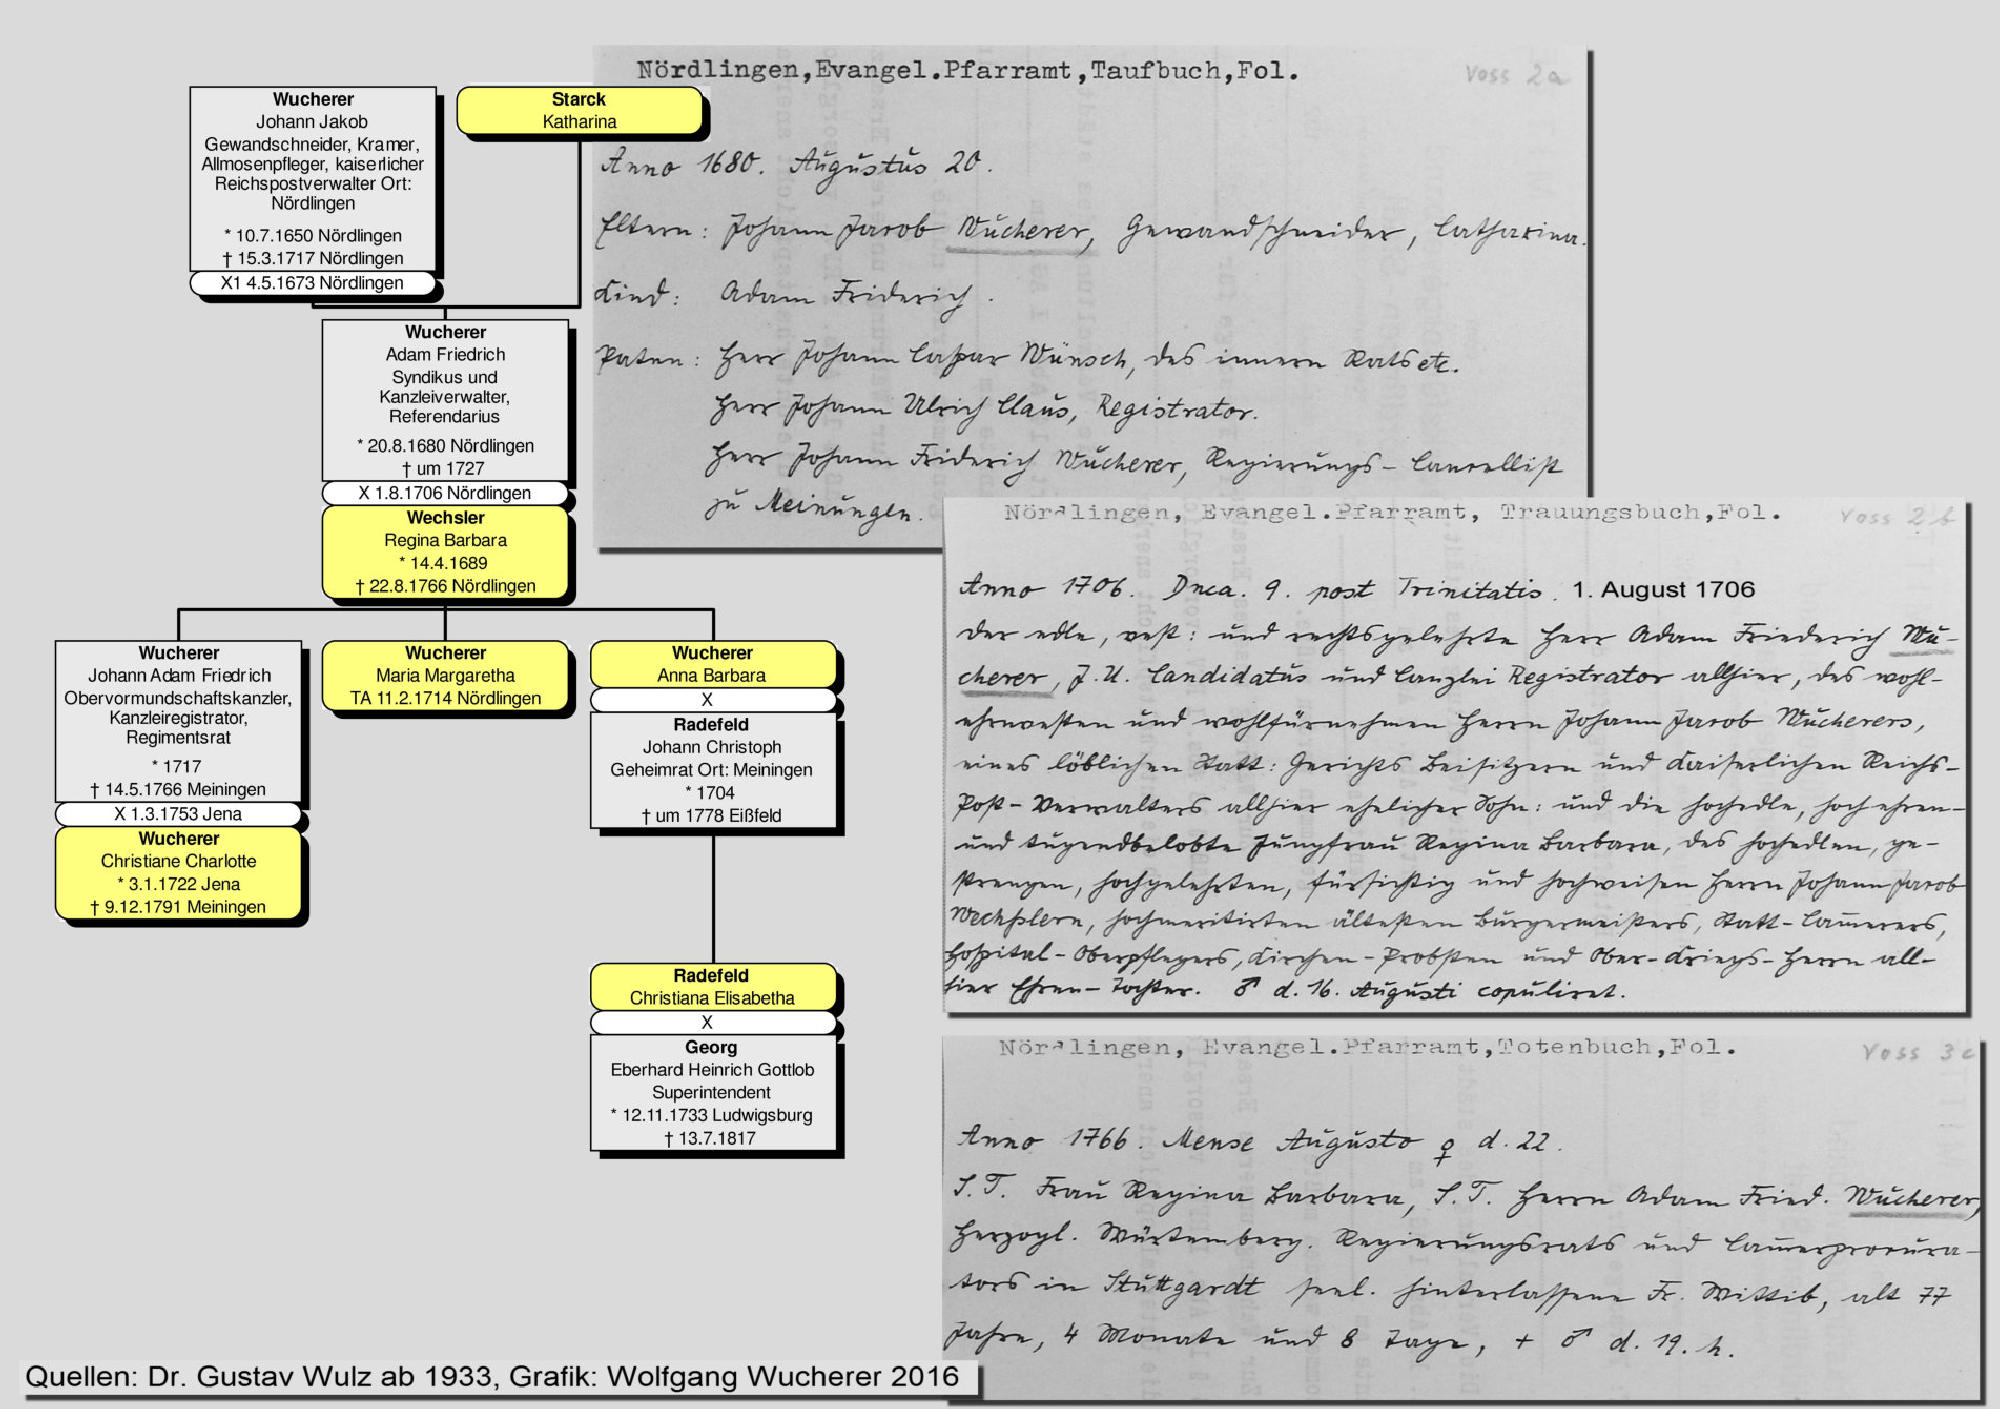 Wucherer
Johann Jakob
Gewandschneider, Kramer,
Allmosenpfleger, kaiserlicher
Reichspostverwalter Ort:
Nördlingen
* 10.7.1650 Nördlingen
† 15.3.1717 Nördlingen
X1 4.5.1673 Nördlingen
Starck
Katharina
Wucherer
Adam Friedrich
Syndikus und
Kanzleiverwalter,
Referendarius
* 20.8.1680 Nördlingen
† um 1727
X 1.8.1706 Nördlingen
Wechsler
Regina Barbara
* 14.4.1689
† 22.8.1766 Nördlingen
Wucherer
Johann Adam Friedrich
Obervormundschaftskanzler,
Kanzleiregistrator,
Regimentsrat
* 1717
† 14.5.1766 Meiningen
X 1.3.1753 Jena
Wucherer
Christiane Charlotte
* 3.1.1722 Jena
† 9.12.1791 Meiningen
Wucherer
Maria Margaretha
TA 11.2.1714 Nördlingen
Wucherer
Anna Barbara
X
Radefeld
Johann Christoph
Geheimrat Ort: Meiningen
* 1704
† um 1778 Eißfeld
Radefeld
Christiana Elisabetha
X
Georg
Eberhard Heinrich Gottlob
Superintendent
* 12.11.1733 Ludwigsburg
† 13.7.1817
Nördlingen,Evangel.Pfarramt,Taufbuch,Fol.
Voss 2a
Anno 1680. Augustus 20.
Eltern: Johann Jacob Wucherer, Gewandschneider, Catharina.
Kind: Adam Friderich.
Paten: Herr Johann Caspar Wünsch, des innern Rats etc.
Herr Johann Ulrich Claus, Registrator.
Herr Johann Friderich Wucherer, Regierungs-Cancellist
zu Meinungen.
Nördlingen, Evangel.Pfarramt, Trauungsbuch,Fol.
Voss 2b
Anno 1706. Dnca. 9. post Trinitatis. 1. August 1706
Der edle, vest: und rechtsgelehrte Herr Adam Friederich Wu-
cherer, J.U. Candidatus und Canzlei Registrator allhier, des wohl-
ehrnvesten und wohlfürnehmen Herrn Johann Jacob Wucherers,
eines löblichen Statt: Gerichts Beisitzern und Kaiserlichen Reichs-
Post-Verwalters allhier ehelicher Sohn: und die hochedle, hochehren-
und tugendbelobte Jungfrau Regina Barbara, des hochedlen, ge-
strengen, hochgelehrten, fürsichtig und hochweisen Herrn Johann Jacob
Wechßlern, hochmeritirten ältesten Bürgermeisters, Statt-Camerers,
Hospital-Oberpflegers, Kirchen-Probsten und Ober-Kriegs-Herrn all-
hier Ehren-Tochter. ♂ d. 16. Augusti copuliret.
Nördlingen, Evangel.Pfarramt,Totenbuch,Fol.
Voss 3c
Anno 1766. Mense Augusto ♀ d. 22.
S.T. Frau Regina Barbara, S.T. Herrn Adam Fried. Wucherer,
Herzogl. Würtemberg. Regierungsrats und Camerprocura-
tors in Stuttgardt seel. hinterlassene Fr. Wittib, alt 77
Jahre, 4 Monate und 8 Tage, + ♂ d. 19. h.
Quellen: Dr. Gustav Wulz ab 1933, Grafik: Wolfgang Wucherer 2016